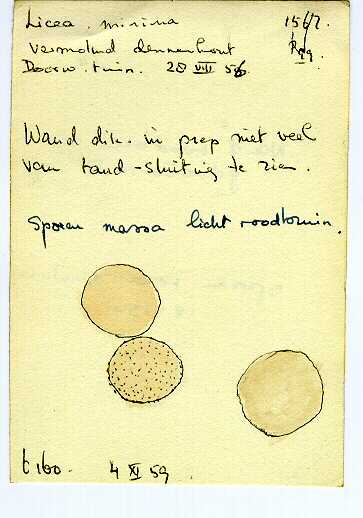 Licea. minima 1567.
vermolmd dennenhout
Doorw. tuin. 28 VIII 56
Wand dik. in prep niet veel
van tand-sluiting te zien.
Sporen massa licht roodbruin.
t 160. 4 XI 59